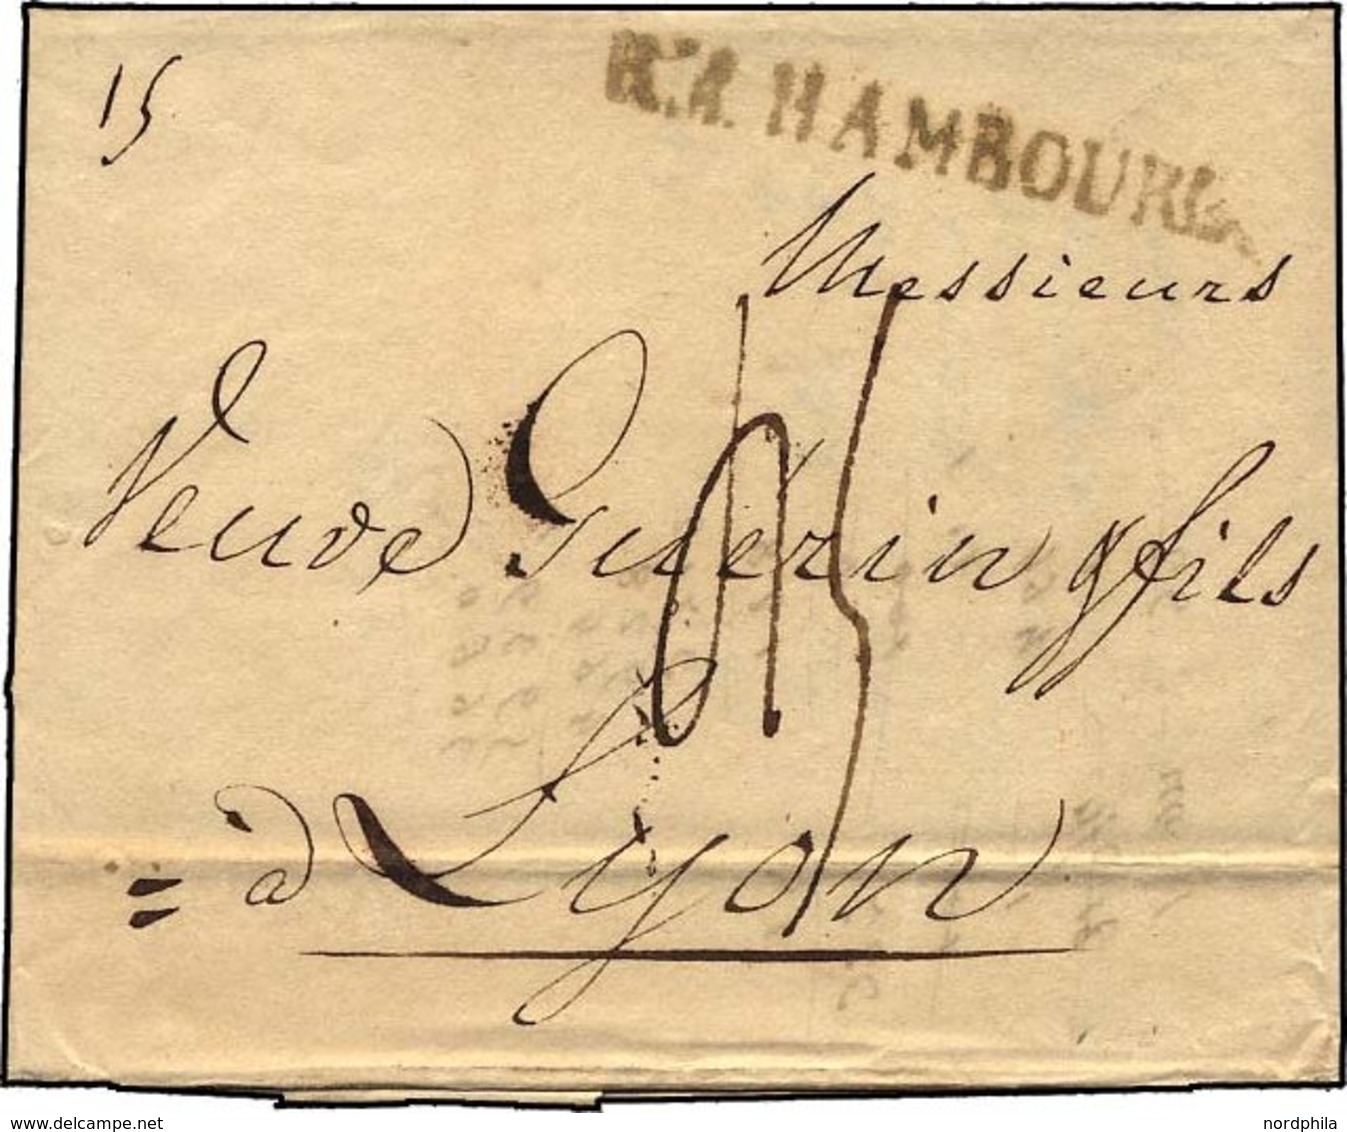 15
R.4. HAMBOURG.
Messieurs
Veuve Guerin & fils
= à Lyon
www.delcampe.net
nordphila